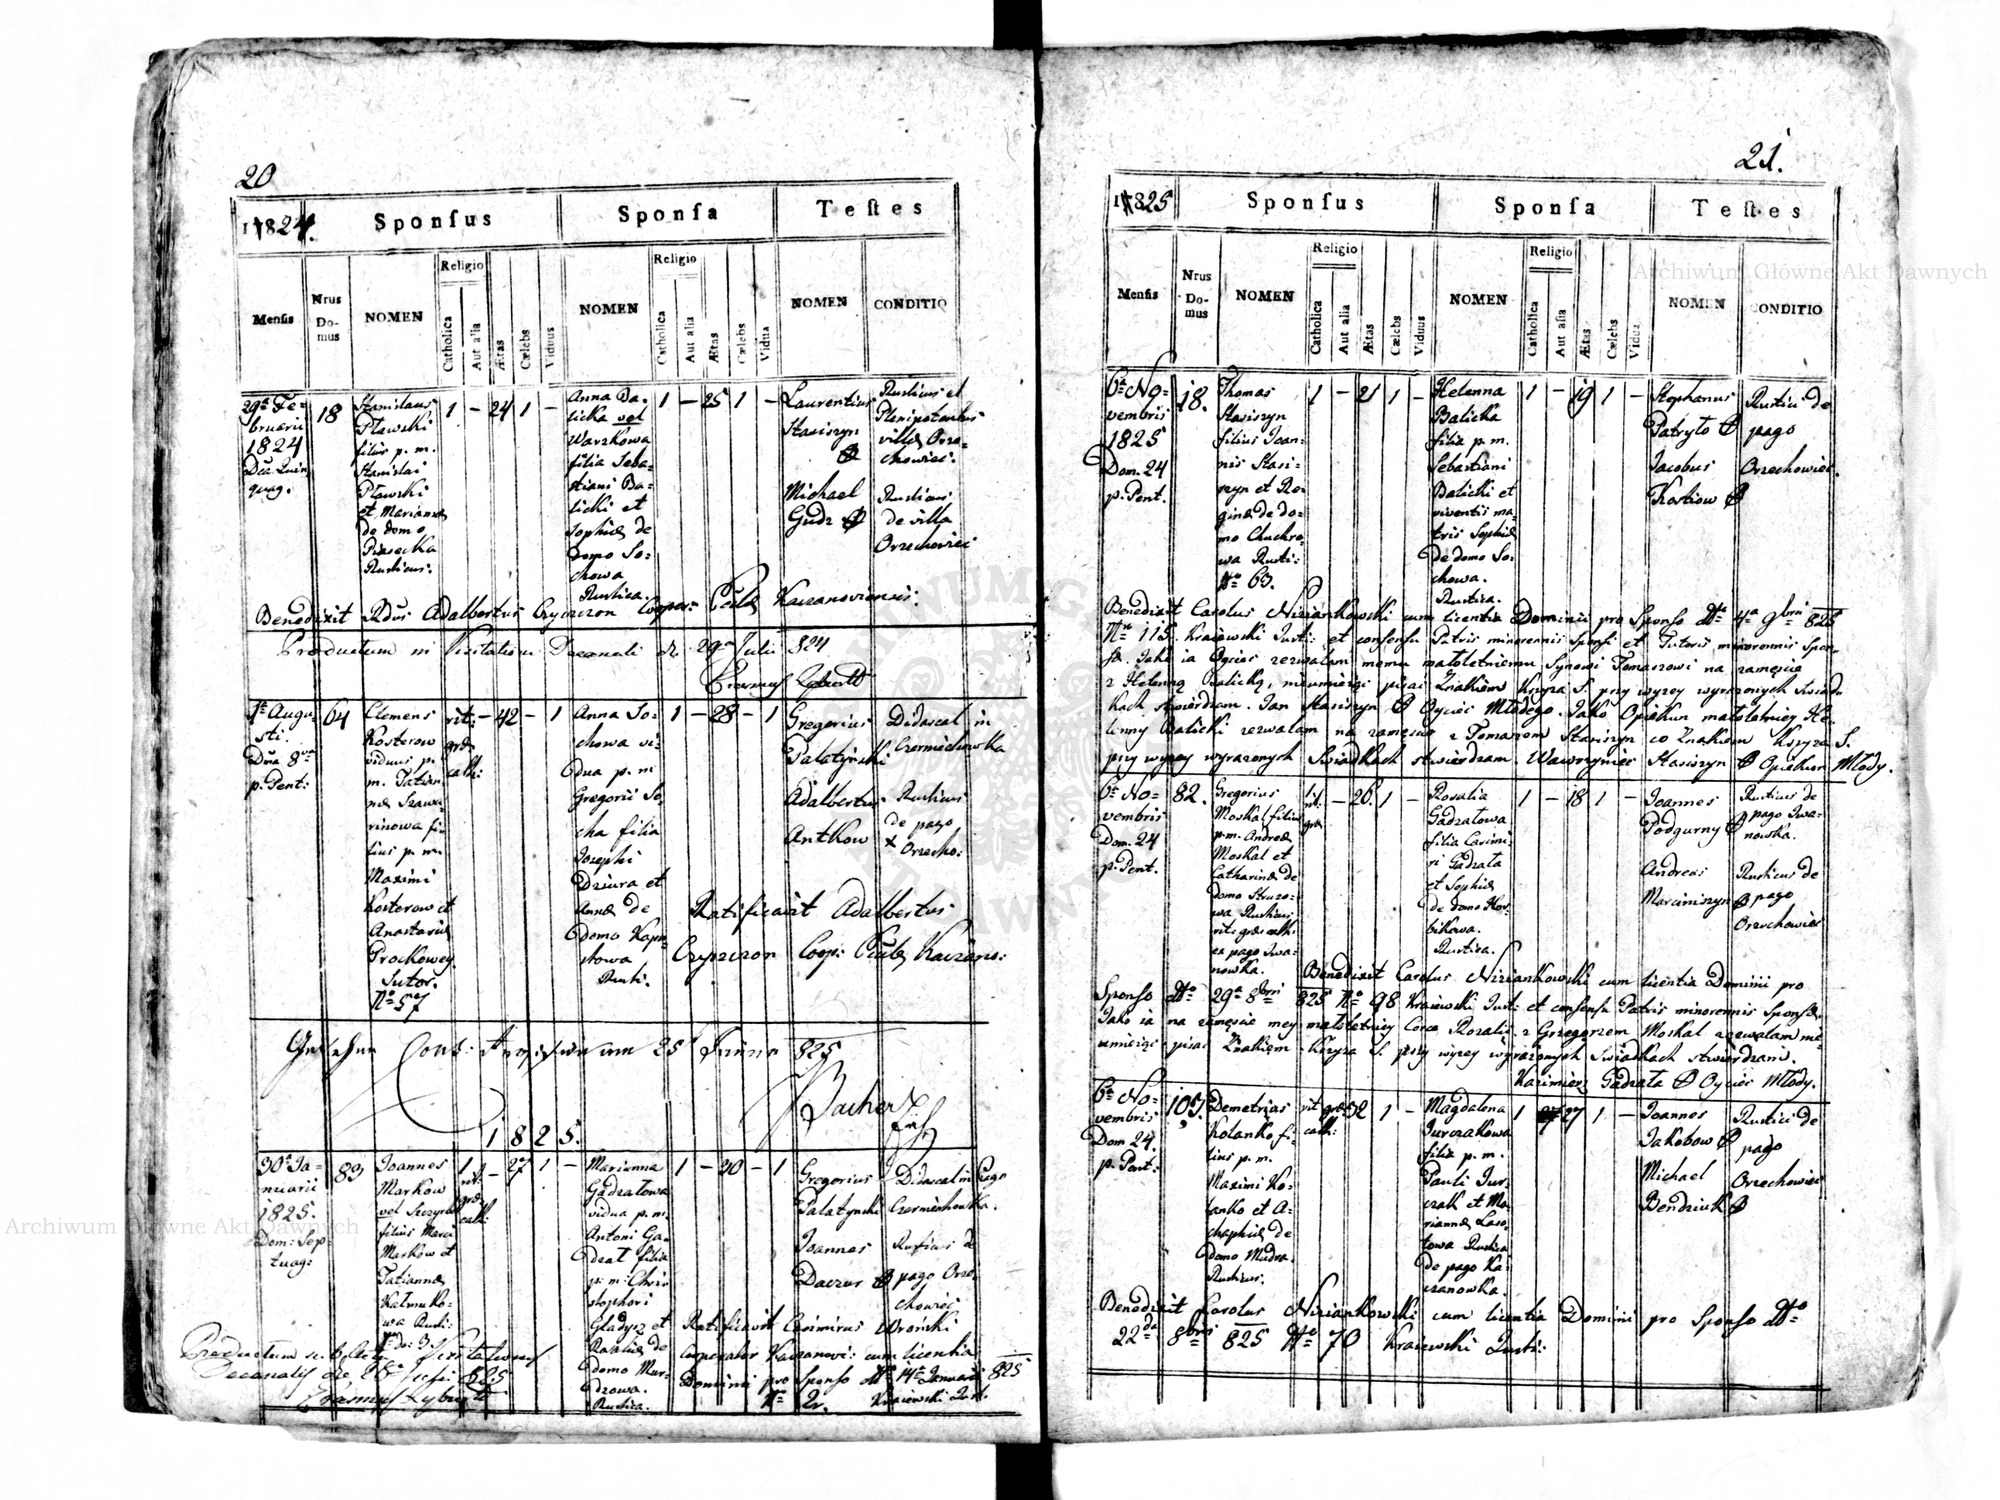 20
1824.
Sponsus
Sponsa
Testes
Mensis
Nrus Domus
NOMEN
Religio
Catholica
Aut alia
Ætas
Cœlebs
Viduus
NOMEN
Religio
Catholica
Aut alia
Ætas
Cœlebs
Vidua
NOMEN
CONDITIO
29a Fe=
bruarii
1824
Dca Quin
quag.
18
Stanislaus
Pławski
filius p. m.
Stanislai
Pławski
et Mariannæ
de domo
Piasecka
Rusticus.
1 - 24 1 -
Anna Ba=
licka vel
Warzkowa
filia Seba=
stiani Ba=
licki et
Sophiæ de
domo So=
chowa
Rustica.
1 - 25 1 -
Laurentius
Stasiszyn
Michael
Gudz
Rusticus et
Plenipotentus
villæ Orze=
chowiec.
Rusticus
de villa
Orzechoviec
Benedixit Rdus Adalbertus Czyrczon Cooper: Ecclæ Kaczanoviensis.
Productum in Visitatione Decanali die 29a Julii 824
1a Augu
sti.
Dca 8va
p. Pent:
64
Clemens
Kosterow
viduus p.
m. Tatian
næ Szawa
rinowa fi=
lius p. m.
Maximi
Kosterow et
Anastasiæ
Prockowey.
Sutor.
No 57
rit.
græ
cath:
- 42 - 1
Anna So=
chowa vi=
dua p. m
Gregorii So=
cha filia
Josephi
Dziura et
Annæ de
domo Kapu
stowa
Rusti.
1 - 28 - 1
Gregorius
Palatyński
Adalbertus
Anthow
Didascal in
Czerniechowka
Rusticus
de pago
Orzecho:
Ratificavit Adalbertus
Czyrczon Coop: Ecclæ Kaczano:
25 825
1825.
30a Ja=
nuarii
1825.
Dom: Sep=
tuag:
83
Joannes
Markow
vel Szczyrba
filius Marci
Markow et
Tatiannæ
Kalmuko=
wa Rusti:
1
rit.
græ
cath:
- 27 1 -
Marianna
Gadzatowa
vidua p. m.
Antoni Ga=
dzat filia
p. m: Chri=
stophori
Gladysz et
Rosaliæ de
domo Mur=
dzowa.
Rustica.
1 - 30 - 1
Gregorius
Palatynski
Joannes
Daczur
Didascal in Pago
Czerniechowka.
Rusticus de
pago Orze=
chowiec
Ratificavit Casimirus Wroński
Cooperator Kaczanovi: cum licentia
Dominii pro Sponso dto 14a Januarii 825
No 2r. Kraiewski Just.
21.
1825
Sponsus
Sponsa
Testes
Mensis
Nrus Domus
NOMEN
Religio
Catholica
Aut alia
Ætas
Cœlebs
Viduus
NOMEN
Religio
Catholica
Aut alia
Ætas
Cœlebs
Vidua
NOMEN
CONDITIO
6a No=
vembris
1825
Dom. 24
p. Pent.
18.
Thomas
Stasiszyn
filius Joan=
nis Stasi=
szyn et Re=
ginæ de do=
mo Chuchro=
wa Rusti=
No 63.
1 - 21 1 -
Helenna
Balicka
filia p. m.
Sebastiani
Balicki et
viventis ma=
tris Sophiæ
de domo So=
chowa.
Rustica.
1 - 19 1 -
Stephanus
Patryło
Jacobus
Kostiow
Rustici de
pago
Orzechowiec.
Benedixit Carolus Niziankowski cum licentia Dominii pro Sponso dto 4a 9bris 825
No 115. Kraiewski Just: et consensu Patris minorennis Sponsi et Tutoris minorennis Spon=
sæ. Jako ia Oyciec zezwalam memu małoletniemu Synowi Tomaszowi na zamęscie
z Helenną Balicką, nieumieiąc pisać Znakiem Krzyża S. przy wyzey wyrażonych Świad
kach stwierdzam. Jan Stasiszyn Oyciec Młodego. Jako Opiekun małoletniey He=
linny Balicki zezwalam na zamęscie z Tomaszem Stasiszyn co Znakiem Krzyza S.
przy wyzey wyrazonych Swiadkach stwierdzam. Wawrzyniec Stasiszyn Opiekun Młody.
6a No=
vembris
Dom. 24
p. Pent.
82.
Gregorius
Moskal filius
p. m. Andreæ
Moskal et
Catharinæ de
domo Struzo=
wa Rusticus
rit. græ. cath:
ex pago Iwa=
nowka.
1
rit.
græ
- 26. 1 -
Rosalia
Gadzatowa
filia Casimi=
ri Gadzata
et Sophiæ
de domo Kor=
bikowa.
Rustica.
1 - 18 1 -
Joannes
Podgurny
Andreas
Marciniszyn
Rusticus de
pago Iwa=
nowka.
Rusticus de
pago
Orzechowiec
Benedixit Carolus Niziankowski cum licentia Dominii pro
Sponso dto 29a 8bris 825 No 98 Kraiewski Just: et consensu Patris minorennis Sponsæ.
Jako ia na zamęscie mey małoletniey Corce Rozalii z Grzegorzem Moskal zezwalam nie=
umieiąc pisać Znakiem Krzyza S. przy wyzey wyrazonych Swiadkach stwierdzam.
Kazimierz Gadzata Oyciec Młody.
6a No=
vembris
Dom 24.
p. Pent:
105.
Demetrius
Kotanko fi=
lius p. m.
Maximi Ko=
tanko et A=
chaphiæ de
domo Mudra.
Rusticus.
rit græ
cath:
32 1 -
Magdalena
Jurczakowa
filia p. m.
Pauli Jur=
czak et Ma=
riannæ Laso=
towa Rustica
de pago Ka=
czanowka.
1 27 1 -
Joannes
Jakobow
Michael
Bendziuk
Rustici de
pago
Orzechowiec
Benedixit Carolus Niziankowski cum licentia Dominii pro Sponso dto
22da 8bris 825 No 70 Kraiewski Justi:
Archiwum Główne Akt Dawnych
Archiwum Główne Akt Dawnych